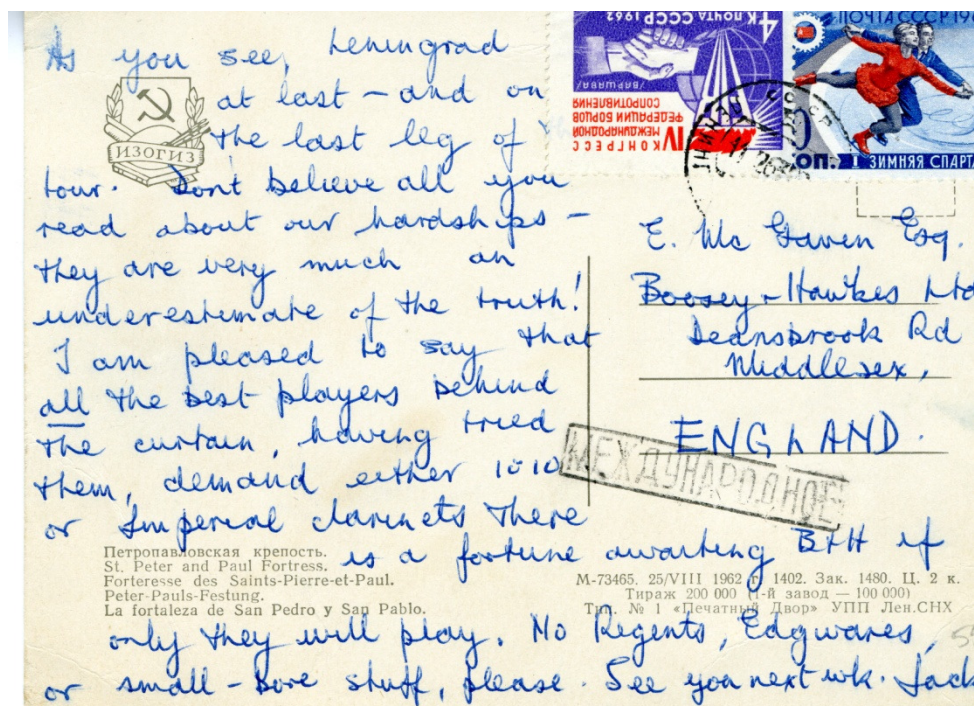 As you see, Leningrad
at last – and on
the last leg of
tour. Don't believe all you
read about our hardships –
they are very much an
underestimate of the truth!
I am pleased to say that
all the best players behind
the curtain, having tried
them, demand either 1010
or Imperial clarinets There
is a fortune awaiting B+H if
only they will play. No Regents, Edgwares,
or small-bore stuff, please. See you next wk. Jack
ИЗОГИЗ
4 К ПОЧТА СССР 1962
/ВАРШАВА/
IV КОНГРЕСС
МЕЖДУНАРОДНОЙ
ФЕДЕРАЦИИ БОРЦОВ
СОПРОТИВЛЕНИЯ
ПОЧТА СССР
ОП.
ЗИМНЯЯ СПАРТ
E. Mc Gaven Esq.
Boosey + Hawkes Ltd
Deansbrook Rd
Middlesex,
ENGLAND.
МЕЖДУНАРОДНОЕ
Петропавловская крепость.
St. Peter and Paul Fortress.
Forteresse des Saints-Pierre-et-Paul.
Peter-Pauls-Festung.
La fortaleza de San Pedro y San Pablo.
М-73465. 25/VIII 1962 г. 1402. Зак. 1480. Ц. 2 к.
Тираж 200 000 (1-й завод — 100 000)
Тип. № 1 «Печатный Двор» УПП Лен.СНХ